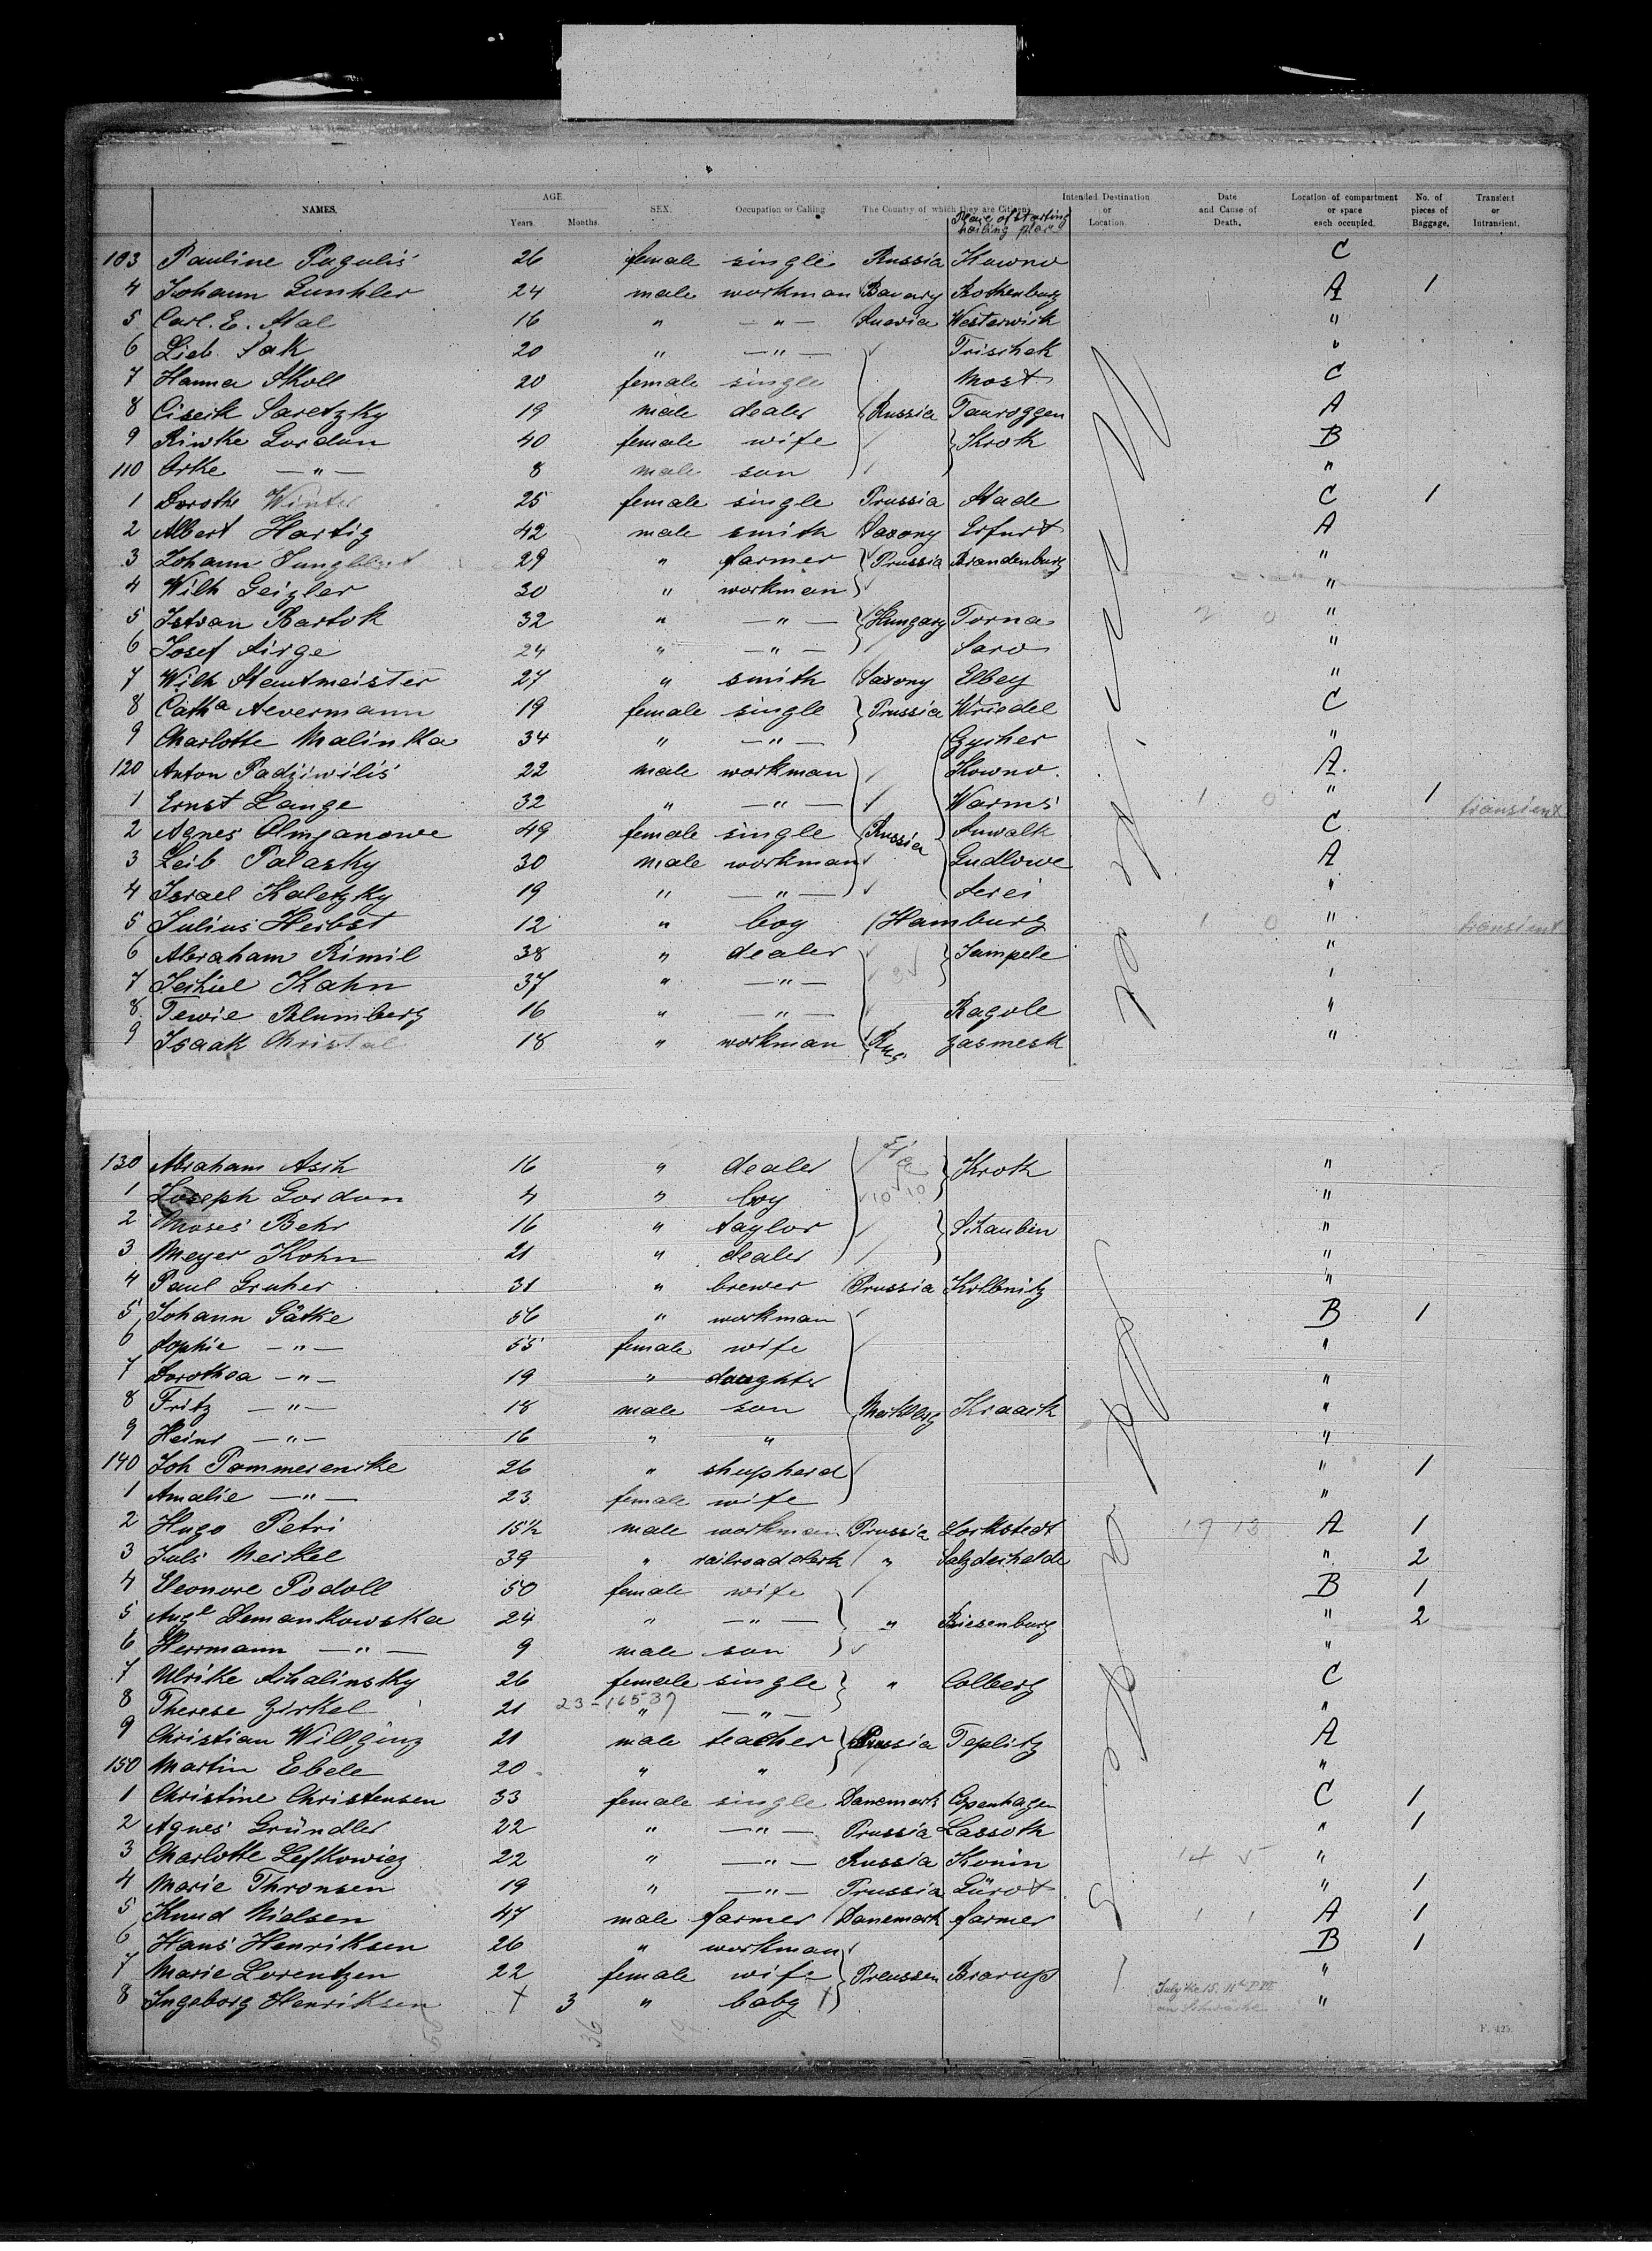 NAMES. AGE. Years. Months. SEX. Occupation or Calling The Country of which they are Citizens. Intended Destination or Location. Date and Cause of Death. Location of compartment or space each occupied. No. of pieces of Baggage. Transient or Intransient.
Place of starting
103 Pauline Pagulis 26 female single Russia Kowno C
4 Johann 24 male workman Bavary Rothenburg A 1
5 Carl. E. 16 " — " — Westerwick "
6 Lieb 20 " — " — Trischek "
7 Hanna Skoll 20 female single Most C
8 Saretzky 19 male dealer Russia Tauroggen A
9 Riwke Gordon 40 female wife Krok B
110 Orke — " — 8 male son "
1 Dorothe Winter 25 female single Prussia Stade C 1
2 Albert Hartig 42 male smith Saxony Erfurt A
3 Johann 29 " farmer Prussia Brandenburg "
4 Wilh Geizler 30 " workman "
5 Istvan Bartok 32 " — " — Hungary Torna 2 0 "
6 Josef 24 " — " — Saro "
7 Wilh 27 " smith Saxony Elbey "
8 Catha Aevermann 19 female single Prussia Wriedel C
9 Charlotte Malinka 34 " — " — "
120 Anton Padziwilis 22 male workman Kowno. A.
1 Ernst Lange 32 " — " — Warms 1 0 " 1 transient
2 Agnes 49 female single Russia Suwalk C
3 Leib Palasky 30 male workman Gudlowe A
4 Israel Kaletzky 19 " — " — Serei "
5 Julius Herbst 12 " boy Hamburg 1 0 " transient
6 Abraham Rimil 38 " dealer Sampele "
7 Kahn 37 " — " — "
8 Tewie Blumberg 16 " — " — Ragole "
9 Isaak Christal 18 " workman Rus. "
130 Abraham Asch 16 " dealer Krok "
1 Joseph Gordon 4 " boy 10 10 "
2 Moses Behr 16 " taylor Schauben "
3 Meyer Kohn 21 " dealer "
4 Paul Gruher 31 " brewer Prussia Kollbnitz "
5 Johann Gätke 56 " workman B 1
6 Sophie — " — 55 female wife "
7 Dorothea — " — 19 " daughter "
8 Fritz — " — 18 male son Kraack "
9 Heinr — " — 16 " " "
140 Joh Pommerenke 26 " shepherd " 1
1 Amalie — " — 23 female wife "
2 Hugo Petri 15½ male workman Prussia Lockstedt 17 13 A 1
3 Juls Merkel 39 " railroad clerk " Salzderhelde " 2
4 Eleonore Podoll 50 female wife B 1
5 Demankowska 24 " — " — " Riesenburg " 2
6 Herrmann — " — 9 male son "
7 Ulrike Schalinsky 26 female single " Colberg C
8 Therese Zirkel 21 23-16537 " — " — "
9 Christian Willging 21 male teacher Russia Teplitz A
150 Martin Ebele 20 " " "
1 Christine Christensen 33 female single Danemark Copenhagen C 1
2 Agnes Gründler 22 " — " — Prussia Lassoth " 1
3 Charlotte Lefkowicz 22 " — " — Russia Konin 14 5 "
4 Marie Thronsen 19 " — " — Prussia " 1
5 Knud Nielsen 47 male farmer Danemark farmer 1 1 A 1
6 Hans Henriksen 26 " workman B 1
7 Marie Lorentzen 22 female wife Preussen Brarup "
8 Ingeborg Henriksen † 3 " baby † July the 15. "
F. 425.